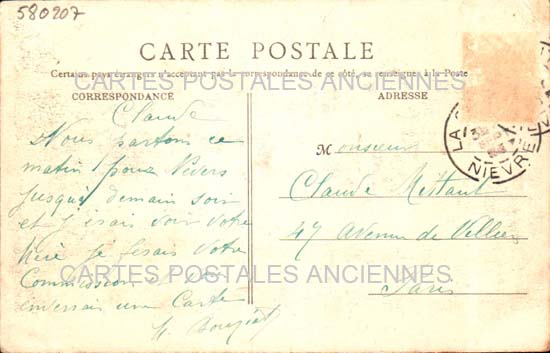 580207
CARTE POSTALE
Certains pays étrangers n'acceptant pas la correspondance de ce côté, se renseigner à la Poste
CORRESPONDANCE
ADRESSE
Claude
Nous partons ce
matin pour
jusqu'à demain soir
et
je ferais votre
Commission et
enverrai une Carte
Monsieur
Claude
47 Avenue de Villiers
Paris
LA
NIEVRE
CARTES POSTALES ANCIENNES
CARTES POSTALES ANCIENNES